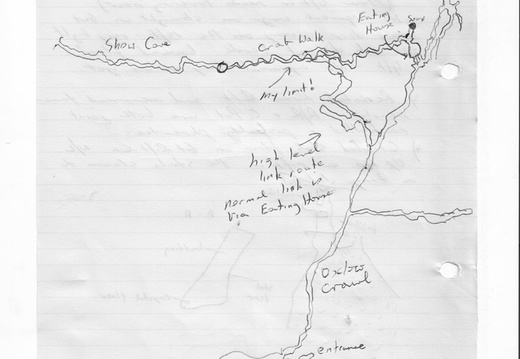 Show Cave
Crab Walk
Eating
House
My limit!
high level
link route
normal link is
via Eating House
Oxlow
Crawl
entrance